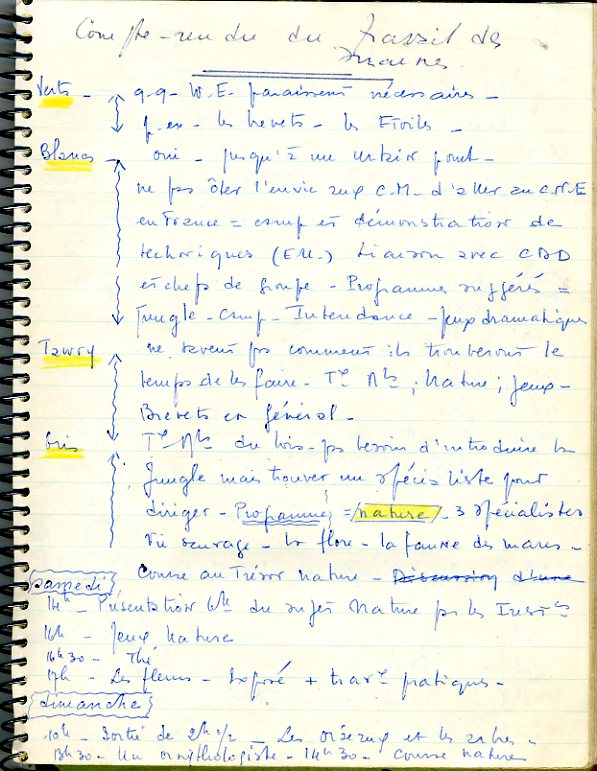 Compte-rendu du travail des
Verts - q-q- W.E. paraissent nécessaires -
p.ex- les brevets - les Etoiles -
Blancs - oui - jusqu'à un certain point -
ne pas ôter l'envie aux C.M. d'aller au C.N.E
en France = camp et démonstration de
techniques (E.M.) Liaison avec CDD
et chefs de groupe - Programmes suggérés =
Jungle - Camp - Intendance - Jeux dramatiques
Tawny ne savent pas comment ils trouveront le
temps de les faire - Tx Mls ; Nature ; Jeux -
Brevets en général -
Gris Tx Mls du bois - pas besoin d'introduire la
Jungle mais trouver un spécialiste pour
diriger - Programme = /nature/ - 3 spécialistes
Vie sauvage - la flore - la faune des mares -
Course au Trésor nature - Discussion d'une
Samedi
14h - Présentation du sujet Nature par les
16h - Jeux, Nature
16h30 - Thé
17h - Les fleurs - Exposé + travx pratiques -
dimanche
10h - Sortie de 2h 1/2 - Les oiseaux et les arbres -
13h30 - Un ornithologiste - 14h30 - Course nature